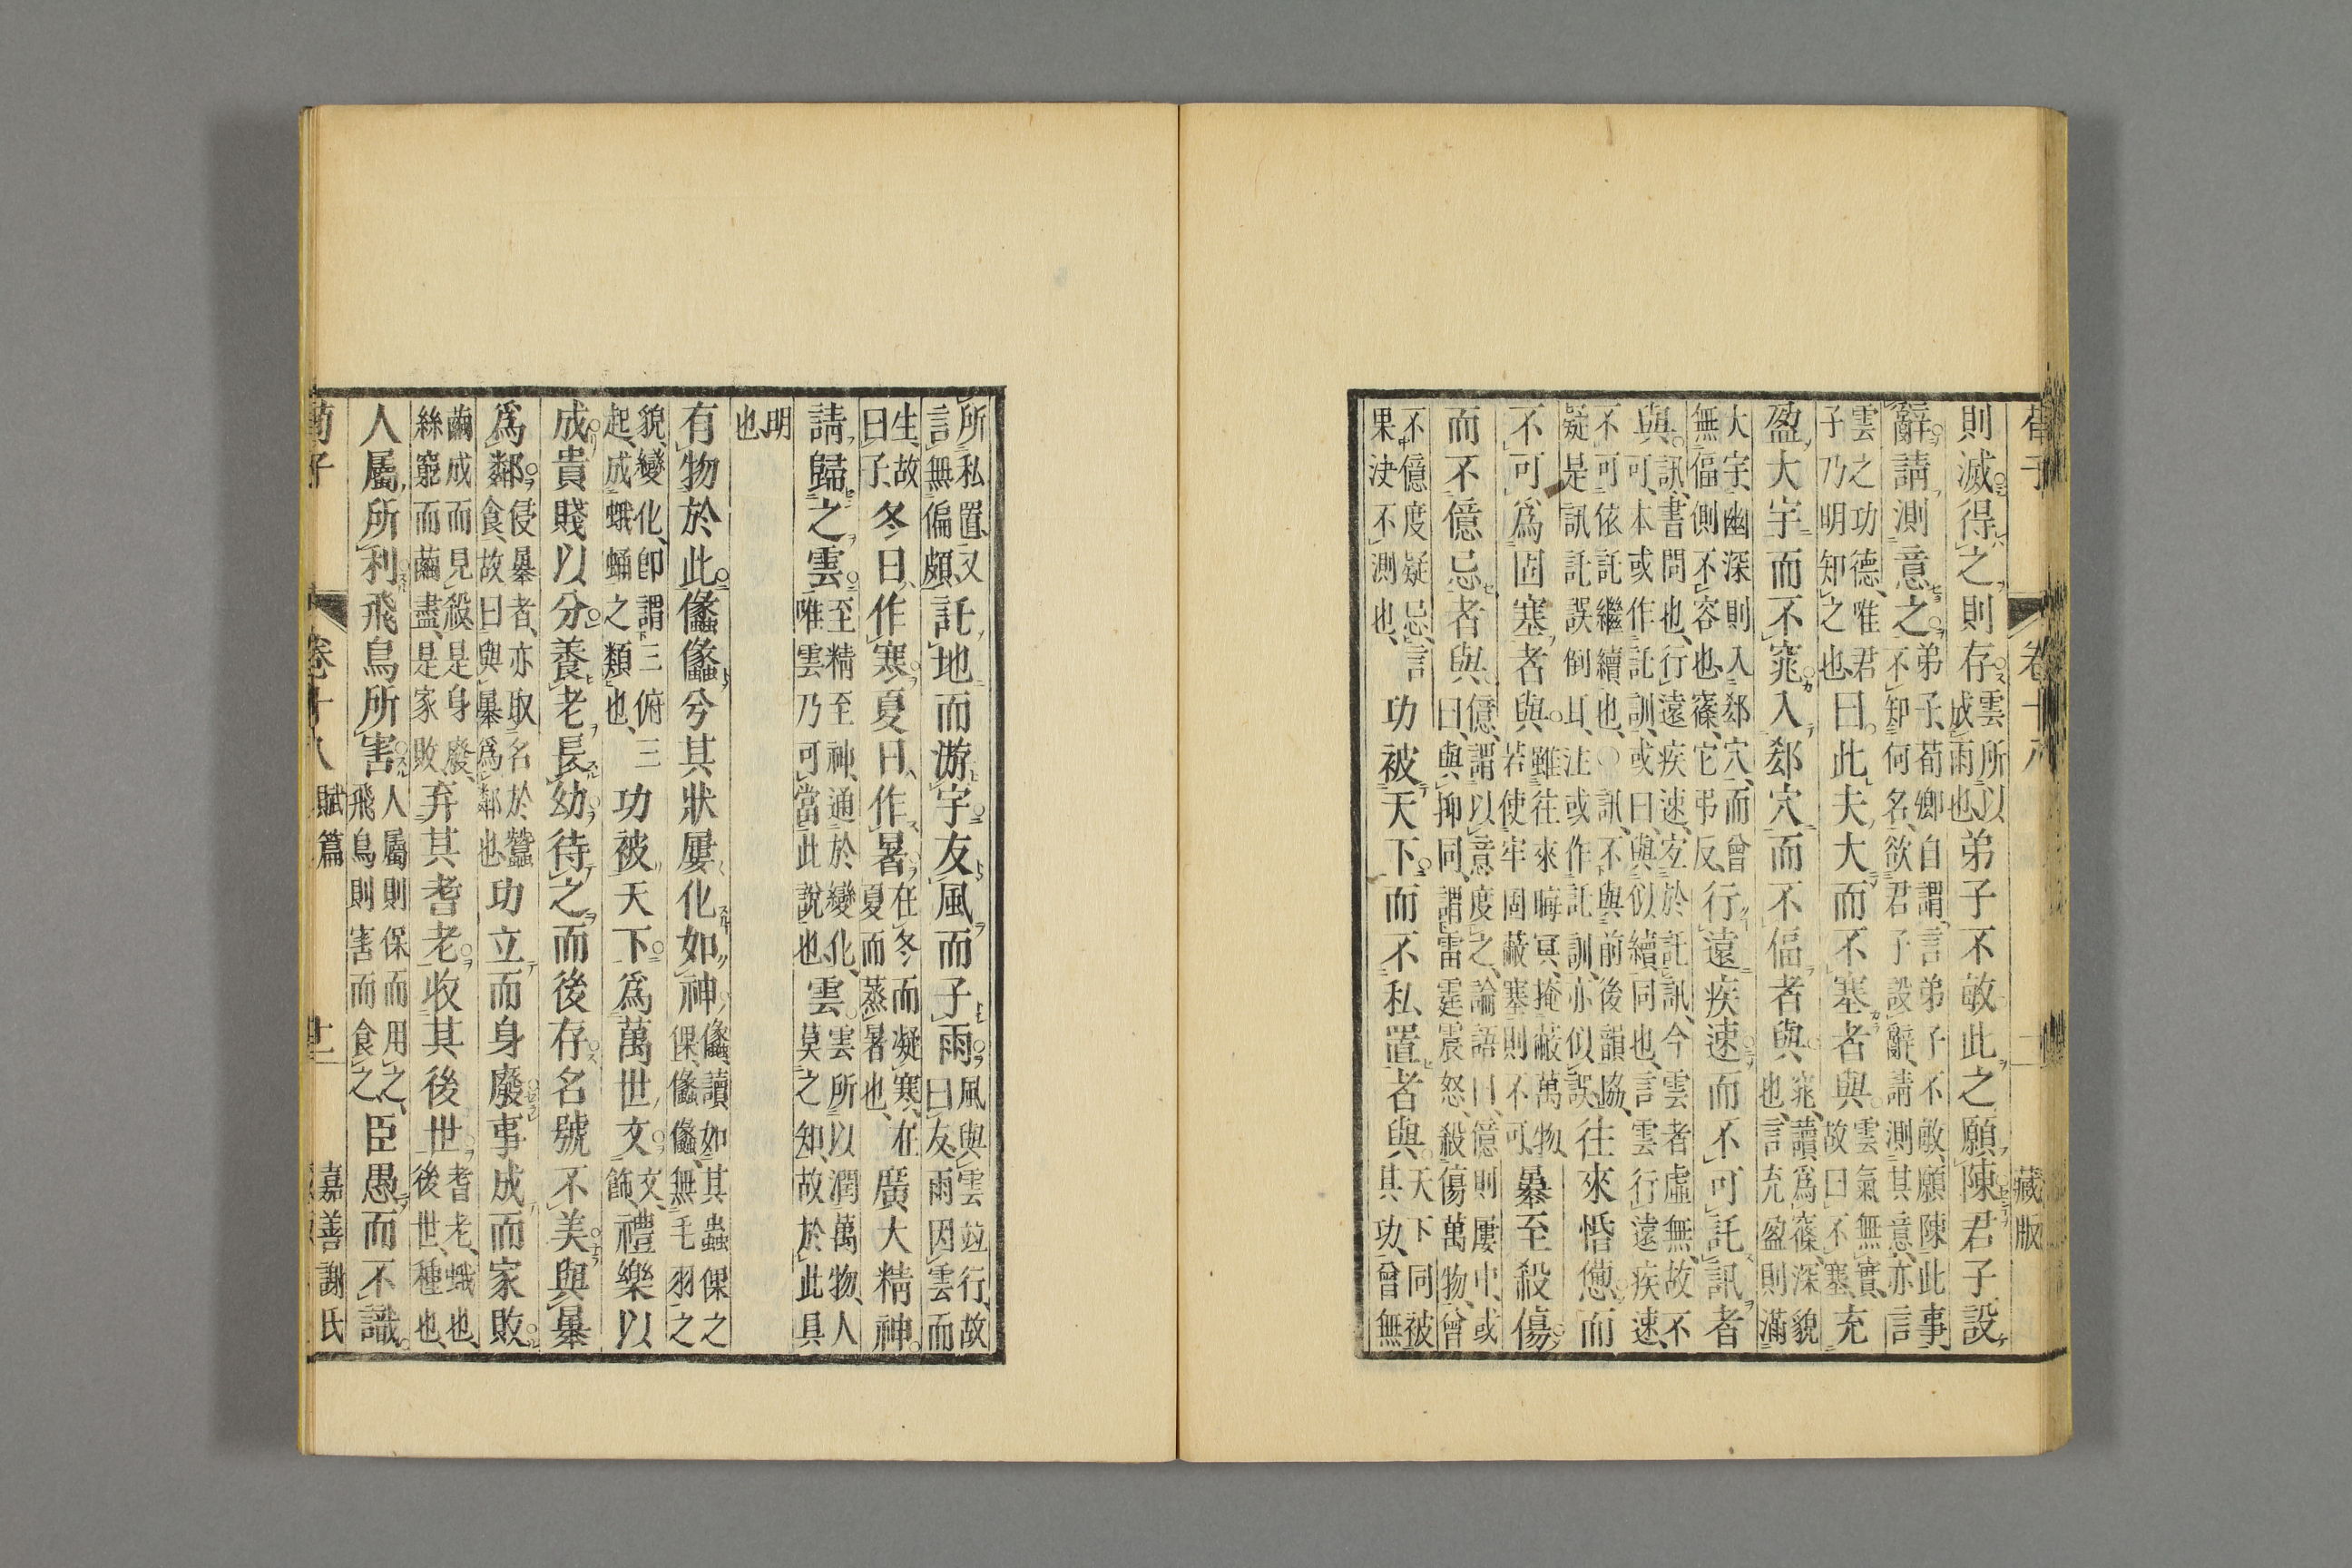 荀子　卷十八　藏版
則滅得之則存雲所以成雨也弟子不敏此之願陳君子設
辭請測意之弟子、荀卿自謂、言弟子不敏、願陳此事不知何名、欲君子設辭、請測其意、亦言
雲之功德、唯君子乃明知之也曰此夫大而不塞者與雲氣無實、故曰不塞、充
盈大宇而不窕入郄穴而不偪者與窕、讀爲篠、深貌也、言充盈則滿
大宇、幽深則入郄穴、而曾無偪側不容也、篠、它弔反、行遠疾速而不可託訊者
與訊、書問也、行遠疾速、宐於託訊、今雲者虛無、故不可、本或作託訓、或曰、與似續同也、言雲行遠疾速、
不可依託繼續也、〇訊、不與前後韻協、疑是訊託誤倒耳、注或作託訓、亦似誤、往來惛憊而
不可爲固塞者與雖往來晦冥、掩蔽萬物、若使牢固蔽塞則不可、暴至殺傷
而不億忌者與億、謂以意度之、論語曰、億則屢中、或曰、與抑同、謂雷霆震怒、殺傷萬物、曾
不億度疑忌、言果決不測也、功被天下而不私置者與天下同被其功、曾無
所私置、又言無偏頗、託地而游宇友風而子雨風與雲竝行、故曰友、雨因雲而
生、故曰子、冬日作寒夏日作暑在冬而凝寒、在夏而蒸暑也、廣大精神
請歸之雲至精至神、通於變化、唯雲乃可當此說也、雲雲所以潤萬物、人莫之知、故於此具
明也
有物於此㒩㒩兮其狀屢化如神㒩、讀如其蟲倮之倮、㒩㒩、無毛羽之
貌、變化、卽謂三俯三起、成蛾蛹之類也、功被天下爲萬世文文、飾、禮樂以
成貴賤以分養老長幼待之而後存名號不美與暴
爲鄰侵暴者、亦取名於蠶食、故曰與暴爲鄰也功立而身廢事成而家敗
繭成而見殺、是身廢、絲窮而繭盡、是家敗、弃其耆老收其後世耆老、蛾也、後世、種也、
人屬所利飛鳥所害人屬則保而用之、飛鳥則害而食之、臣愚而不識
荀子　卷十八　賦篇　十二　嘉善謝氏